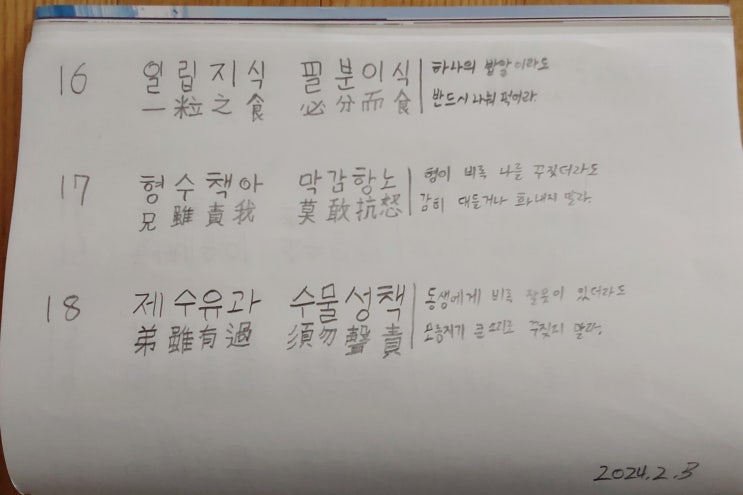 16 일립지식 필분이식 하나의 밥알이라도
一粒之食 必分而食 반드시 나눠 먹어라.
17 형수책아 막감항노 형이 비록 나를 꾸짖더라도
兄雖責我 莫敢抗怒 감히 대들거나 화내지 말라.
18 제수유과 수물성책 동생에게 비록 잘못이 있더라도
弟雖有過 須勿聲責 모름지기 큰 소리로 꾸짖지 말라.
2024.2.3